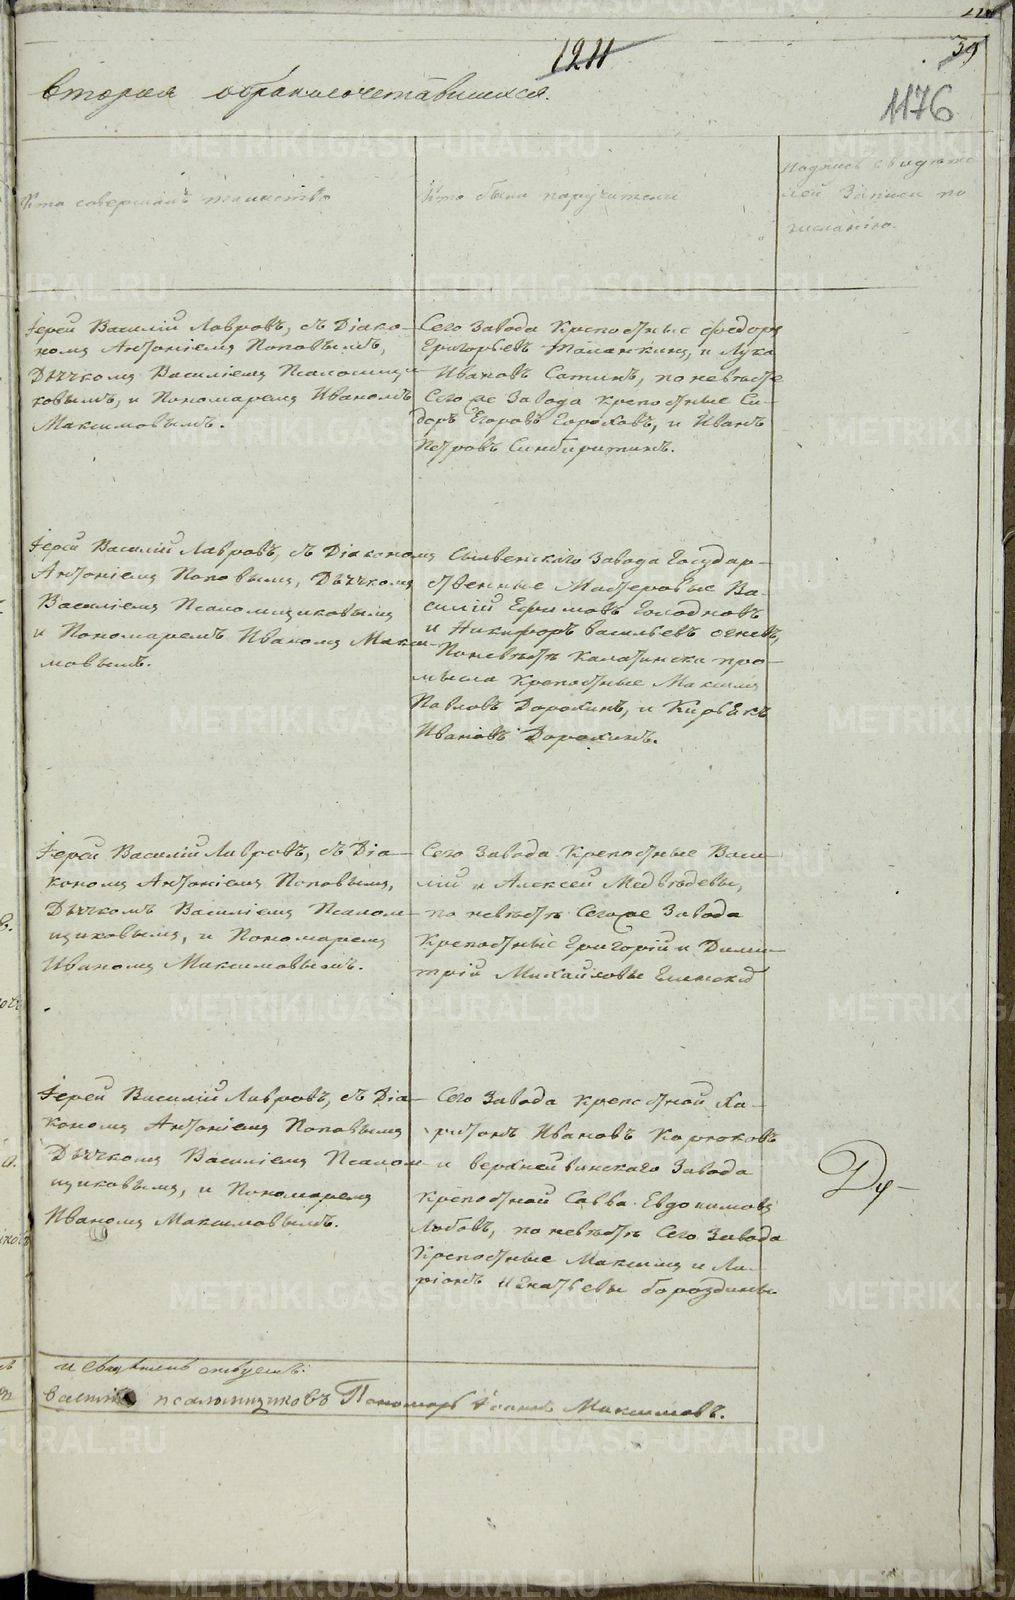 1211
39
1176
вторая обракосочетавшихся.
Кто совершалъ таинство
Кто были поручители
Подпись свидѣте
лей записи по
желанію.
Іерей Василій Лавровъ, съ Діако-
номъ Антоніемъ Поповымъ,
Дьячкомъ Василіемъ Псаломщи-
ковымъ, и Пономаремъ Иваномъ
Максимовымъ.
Сего Завода Крепостные Федоръ
Григорьевъ и Лука
Ивановъ Сатинъ, по невѣстѣ
Сего же Завода крепостные Си-
доръ Егоровъ Гороховъ, и Иванъ
Петровъ Синбирятинъ.
Іерей Василій Лавровъ, съ Діакономъ
Антоніемъ Поповымъ, Дьячкомъ
Василіемъ Псаломщиковымъ
и Пономаремъ Иваномъ Макси-
мовымъ.
Сылвенскаго Завода Государ-
ственные Мастеровые Ва-
силій Ефимовъ Голодновъ
и Никифоръ Васильевъ
По невѣстѣ про-
мысла Крепостные Максимъ
Павловъ Дорохинъ, и
Ивановъ Дорохинъ.
Іерей Василій Лавровъ, съ Діа-
кономъ Антоніемъ Поповымъ,
Дьячкомъ Василіемъ Псалом-
щиковымъ, и Пономаремъ
Иваномъ Максимовымъ.
Сего Завода Крепостные Васи-
лій и Алексей Медвѣдевы,
по невѣстѣ Сего же Завода
Крепостные Григорій и Дими-
трій Михайловы
Іерей Василій Лавровъ, съ Діа-
кономъ Антоніемъ Поповымъ
Дьячкомъ Василіемъ Псалом-
щиковымъ, и Пономаремъ
Иваномъ Максимовымъ.
Сего Завода крепостной Ха-
ритонъ Ивановъ Корюковъ
и верхнейвинскаго Завода
крепостной Савва Евдокимовъ
Лобовъ, по невѣстѣ Сего Завода
Крепостные Максимъ и Ла-
ріонъ Игнатьевы бороздины
псаломщиковъ Пономарь Іоаннъ Максимовъ.
METRIKI.GASO-URAL.RU